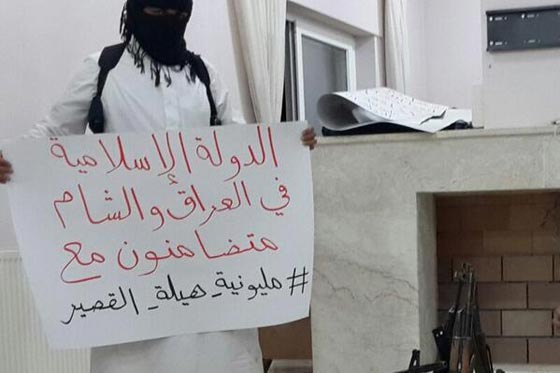 الدولة الإسلامية
في العراق والشام
متضامنون مع
#مليونية_هيلة_القصير